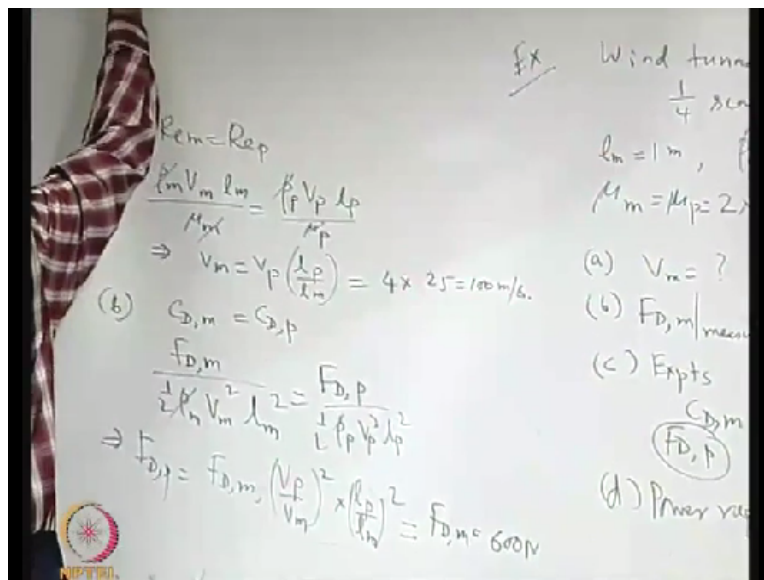 Rem = Rep
ρm Vm lm / μm = ρp Vp lp / μp
⇒ Vm = Vp (lp/lm) = 4 x 25 = 100 m/s.
(b) CD,m = CD,p
FD,m / ½ ρm Vm² lm² = FD,p / ½ ρp Vp² lp²
⇒ FD,p = FD,m, (Vp/Vm)² × (lp/lm)² = FD,m = 600N
Ex Wind tunn
1/4 sca
lm = 1 m,
μm = μp = 2
(a) Vm = ?
(b) FD,m| measu
(c) Expts
CD,m
FD,p
(d) Power req
NPTEL